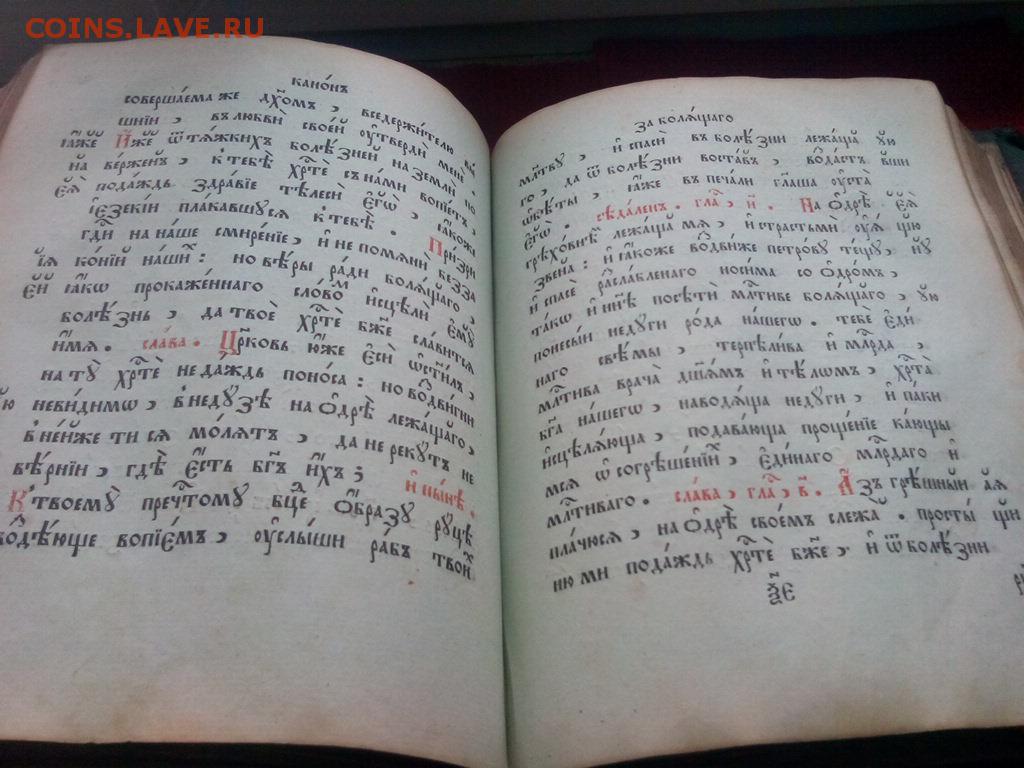 COINS.LAVE.RU
канѡ́нъ
совершаема же дх҃омъ, вседержителю
шнїи, въ любви своей ᲂу҆тверди мене.
И҆́же ѿ тѧ́жкихъ болѣ́зней на земли по
на ве́рженъ, к тебѣ̀ хрⷭ҇тѐ съ нами вопїетъ,
є҆ѧ̀ пода́ждь здра́вїе тѣ́лесѝ є҆гѡ̀, ꙗ҆́коже
і҆езекі́и пла́кавшусѧ к тебѣ̀. При́зри
гдⷭ҇и на на́ше смире́нїе, и҆ не помѧнѝ безза
ко́нїй на́ши: но вѣ́ры ра́ди болѧ́щаго,
ꙗ҆́кѡ прокаже́ннаго сло́вомъ и҆сцѣлѝ є҆мꙋ̀
болѣ́знь, да твоѐ хрⷭ҇тѐ бж҃е сла́витсѧ
и҆́мѧ. сла́ва. Цр҃ковь ю҆́же є҆сѝ ѡ҆свѧти́лъ,
на тꙋ̀ хрⷭ҇тѐ не да́ждь поно́са: но во́движи
невѝдимѡ, в недꙋ́зѣ на ѻ҆дрѣ̀ лежа́щаго,
в не́йже ти сѧ мо́лѧтъ, да не рекꙋ́тъ не
вѣ́рнїи, гдѣ̀ є҆́сть бг҃ъ и҆́хъ; и҆ ны́нѣ.
К твоемꙋ̀ пречⷭ҇томꙋ бц҃е ѻ҆́бразꙋ рꙋ́цѣ
во́дѣ́юще вопїе́мъ, ᲂу҆слы́ши ра́бъ твои́хъ
за болѧ́щаго
мл҃твꙋ, и҆ спасѝ въ болѣ́зни лежа́ща
го, да ѿ болѣ́зни воста́въ, во́дастъ
ѡ҆бѣ́ты, ꙗ҆́же въ печа́ли гл҃аша ᲂу҆ста̀
є҆гѡ̀. сѣда́ленъ. гла́, и҃. На ѻ҆дрѣ̀
грѣхо́внѣмъ лежа́ща мѧ, и҆ страстьмѝ
звена: и҆ ꙗ҆́коже во́движе петро́вꙋ те́щꙋ,
и҆ спасе разсла́бленаго носи́ма со ѻ҆дро́мъ,
та́кѡ и҆ нн҃ѣ посѣтѝ млⷭ҇тиве болѧ́щаго,
понесы́й недꙋги ро́да на́шегѡ. тебе є҆ди́
наго свѣ́мы, терпѣли́ва и҆ млⷭ҇рда,
млⷭ҇тива врача̀ дш҃а́мъ и҆ тѣло́мъ, хрⷭ҇та̀
бг҃а на́шегѡ, наводѧ́ща недꙋги, и҆ па́ки
и҆сцѣлѧ́юща, подава́юща проще́нїе ка́ющы
мсѧ ѡ҆ согрѣше́нїихъ, є҆ди́наго млⷭ҇рдаго и҆
млⷭ҇тиваго. сла́ва, гла́, в҃. А҆́зъ грѣ́шный
пла́чюсѧ, на ѻ҆дрѣ̀ свое́мъ слежа̀. просты́
ню ми пода́ждь хрⷭ҇тѐ бж҃е, и҆ ѿ болѣ́зни